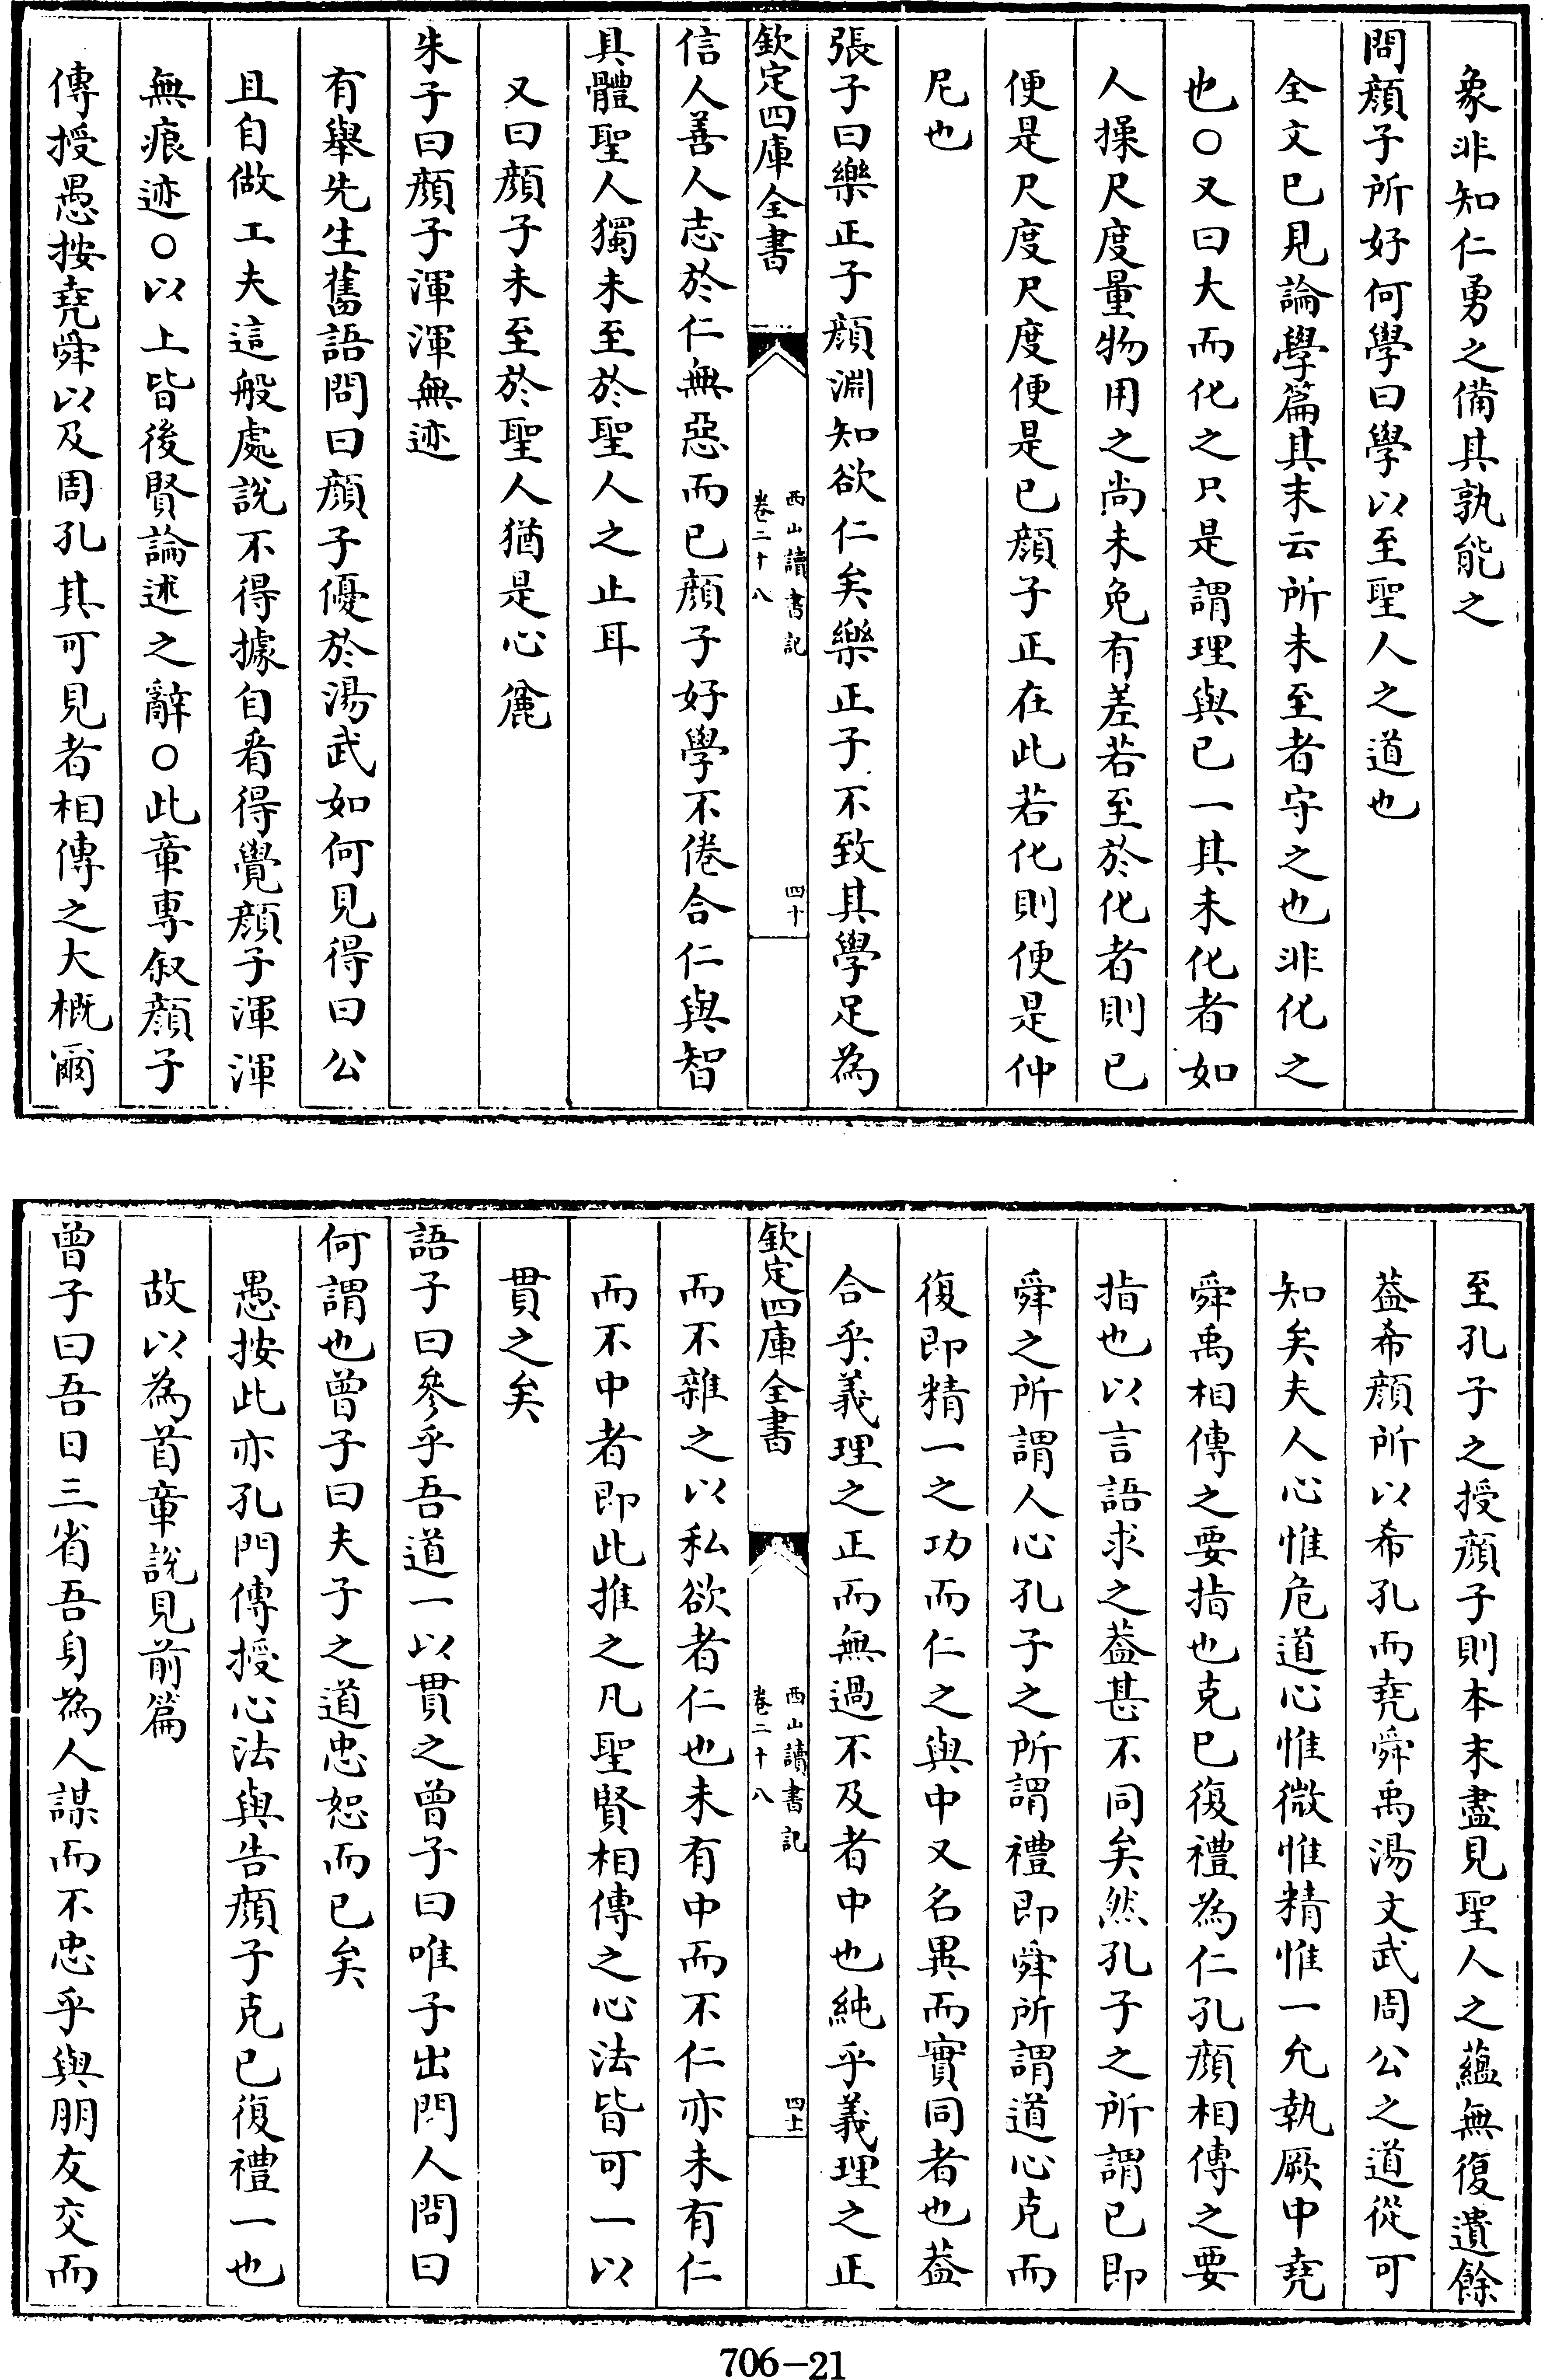 象非知仁勇之備其孰能之
問顔子所好何學曰學以至聖人之道也
全文已見論學篇其末云所未至者守之也非化之
也○又曰大而化之只是謂理與已一其未化者如
人操尺度量物用之尚未免有差若至於化者則已
便是尺度尺度便是已顔子正在此若化則便是仲
尼也
張子曰樂正子顔淵知欲仁矣樂正子不致其學足為
欽定四庫全書
西山讀書記
卷二十八
四十
信人善人志於仁無惡而已顔子好學不倦合仁與智
具體聖人獨未至於聖人之止耳
又曰顔子未至於聖人猶是心麄
朱子曰顔子渾渾無迹
有舉先生舊語問曰顔子優於湯武如何見得曰公
且自做工夫這般處說不得據自看得覺顔子渾渾
無痕迹○以上皆後賢論述之辭○此章專叙顔子
傳授愚按堯舜以及周孔其可見者相傳之大概爾
至孔子之授顔子則本末盡見聖人之蘊無復遺餘
葢希顔所以希孔而堯舜禹湯文武周公之道從可
知矣夫人心惟危道心惟微惟精惟一允執厥中堯
舜禹相傳之要指也克已復禮為仁孔顔相傳之要
指也以言語求之葢甚不同矣然孔子之所謂已即
舜之所謂人心孔子之所謂禮即舜所謂道心克而
復即精一之功而仁之與中又名異而實同者也葢
合乎義理之正而無過不及者中也純乎義理之正
欽定四庫全書
西山讀書記
卷二十八
四十一
而不雜之以私欲者仁也未有中而不仁亦未有仁
而不中者即此推之凡聖賢相傳之心法皆可一以
貫之矣
語子曰參乎吾道一以貫之曾子曰唯子出門人問曰
何謂也曾子曰夫子之道忠恕而已矣
愚按此亦孔門傳授心法與告顔子克已復禮一也
故以為首章說見前篇
曾子曰吾日三省吾身為人謀而不忠乎與朋友交而
706-21